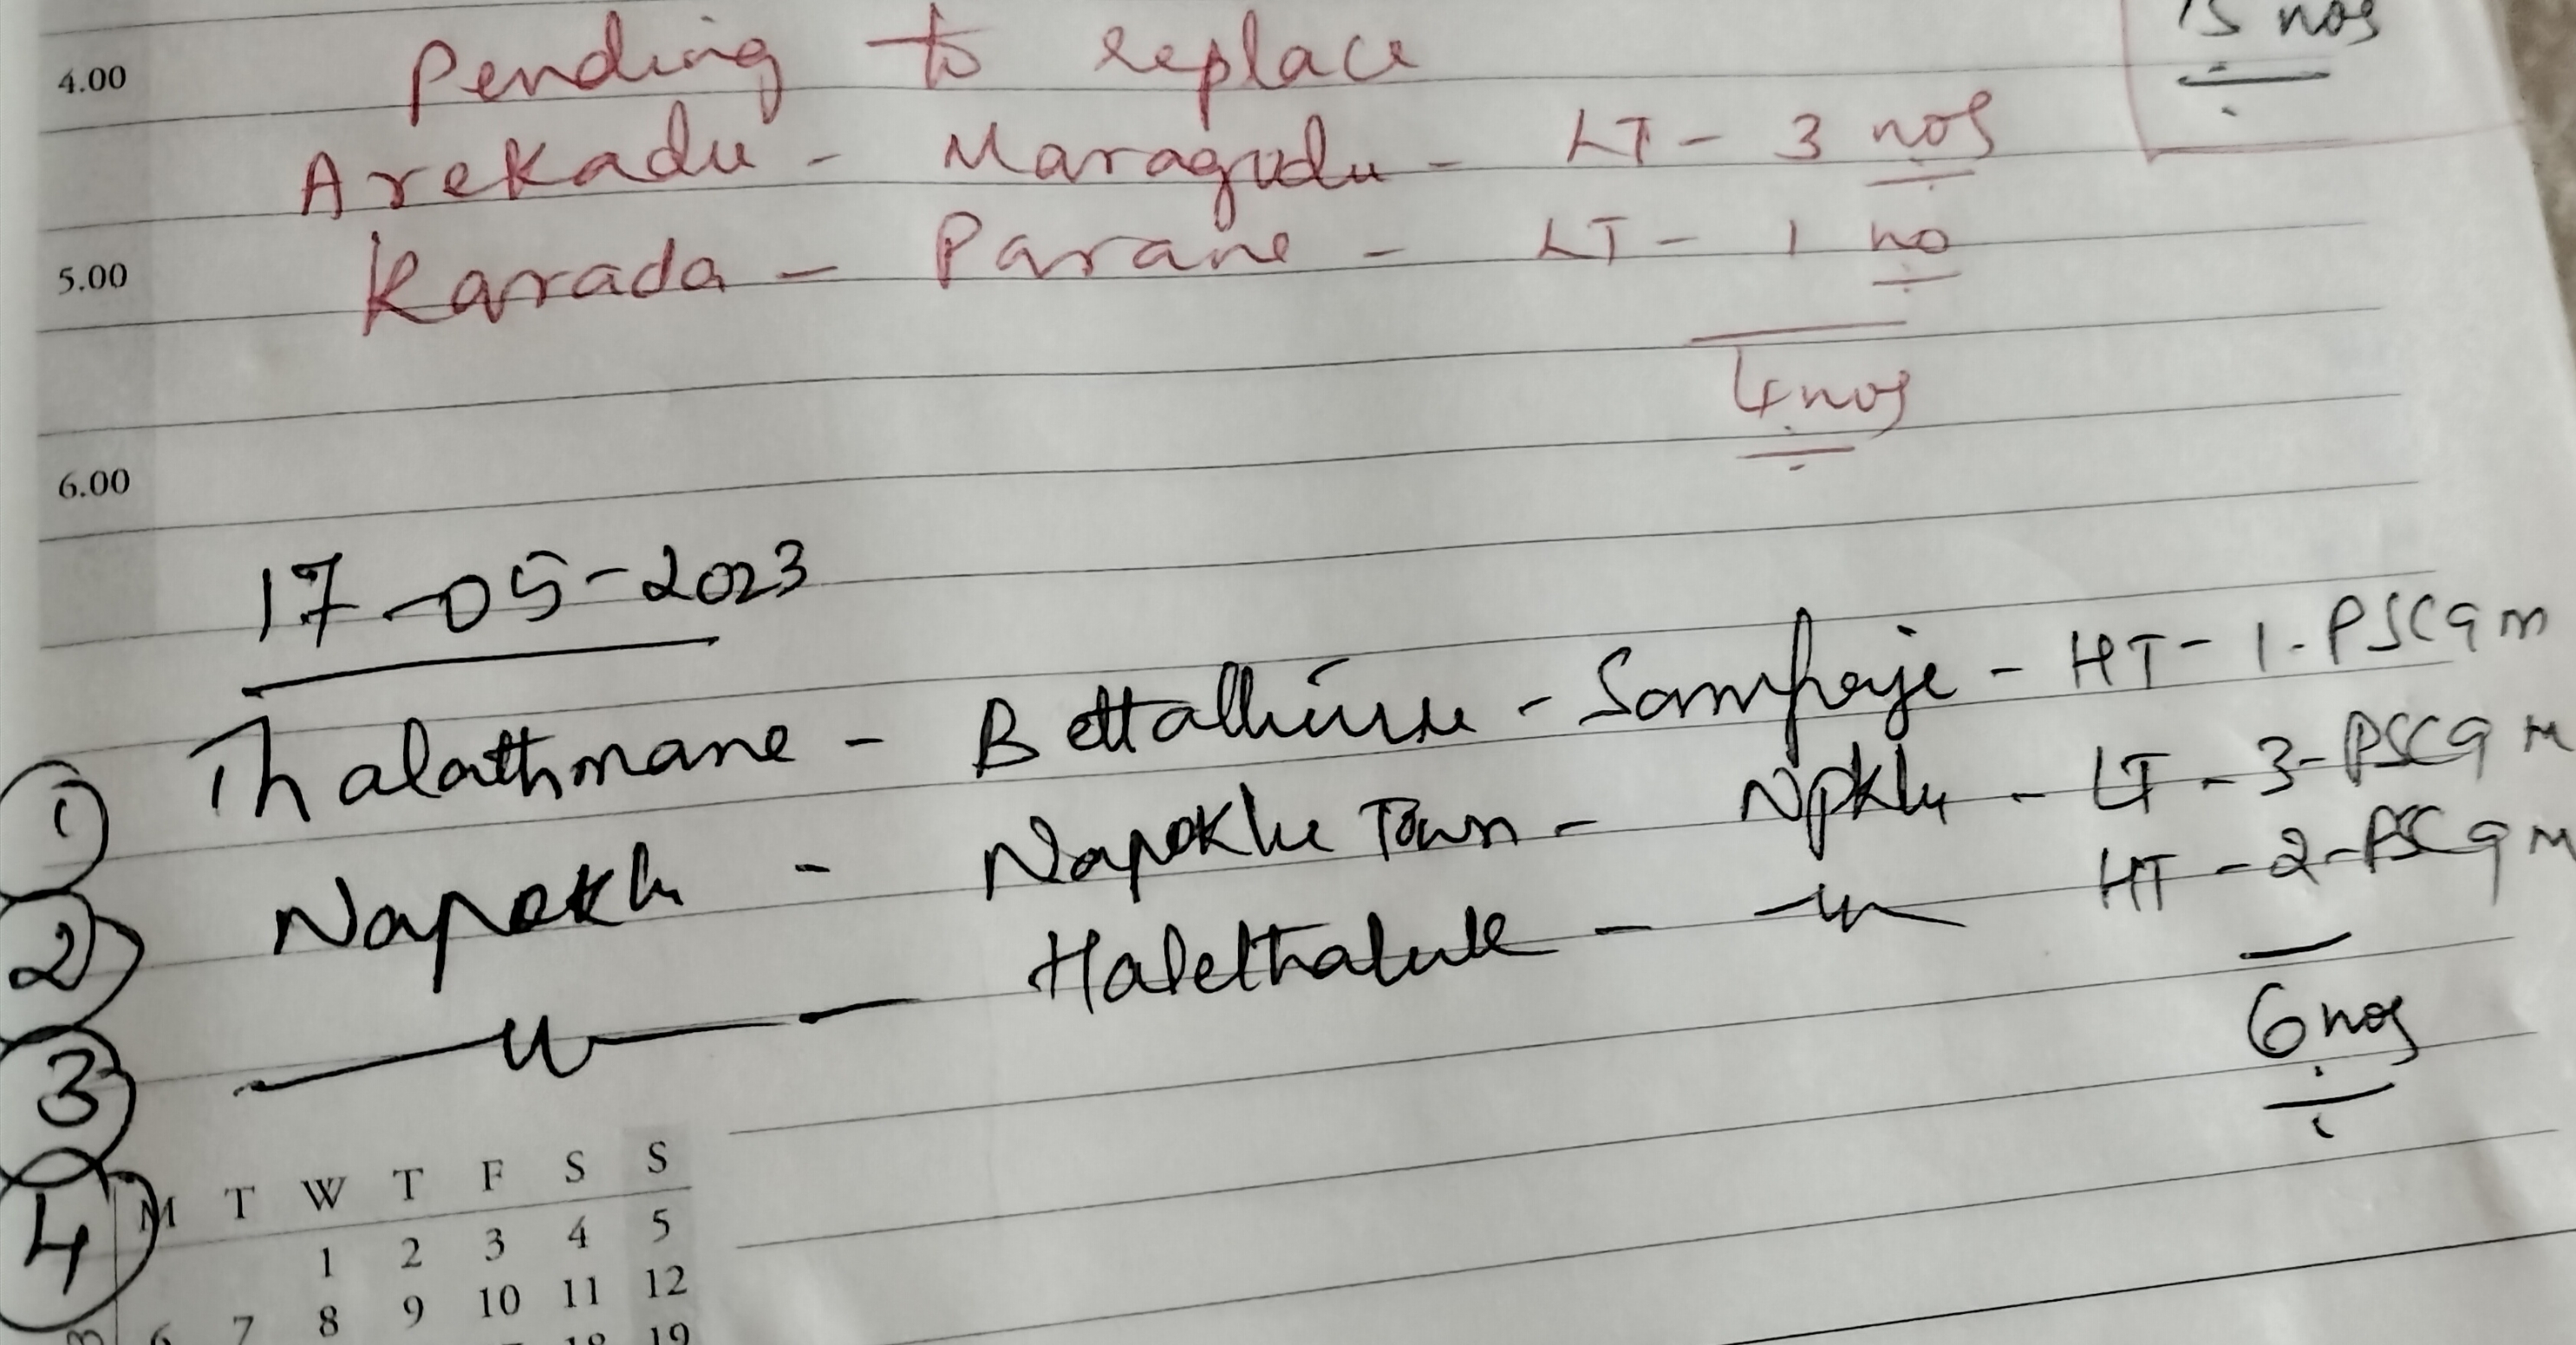 15 nos
4.00
Pending to replace
Arekadu - Maragodu - LT - 3 nos
5.00
Karada - Parane - LT - 1 no
4 nos
6.00
17-05-2023
1 Thalathmane - Bettathuru - Sampaje - HT - 1 - PSC 9 m
2 Napoklu - Napoklu Town - Npklu - LT - 3 - PSC 9 M
3 — 〃 — Halethaluk - — 〃 — HT - 2 - PSC 9 M
6 nos
4
M T W T F S S
1 2 3 4 5
6 7 8 9 10 11 12
18 19